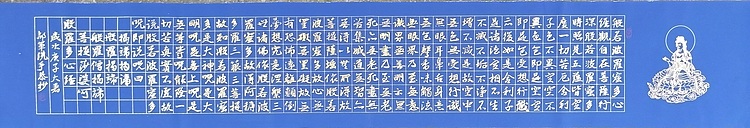 般若波羅蜜多心
經觀自在菩薩行
深般若波羅蜜多
時照見五蘊皆空
度一切苦厄舍利
子色不異空空不
異色色即是空空
即是色受想行識
亦復如是舍利子
是諸法空相不生
不滅不垢不淨不
增不減是故空中
無色無受想行識
無眼耳鼻舌身意
無色聲香味觸法
無眼界乃至無意
識界無無明亦無
無明盡乃至無老
死亦無老死盡無
苦集滅道無智亦
無得以無所得故
菩提薩埵依般若
波羅蜜多故心無
罣礙無罣礙故無
有恐怖遠離顛倒
夢想究竟涅槃三
世諸佛依般若波
羅蜜多故得阿耨
多羅三藐三菩提
故知般若波羅蜜
多是大神咒是大
明咒是無上咒是
無等等咒能除一
切苦真實不虛故
說般若波羅蜜多
咒即說咒曰
揭諦揭諦
般羅揭諦
般羅僧揭諦
菩提莎婆訶
般若波羅蜜多心經
歲次庚子大暑
恭抄